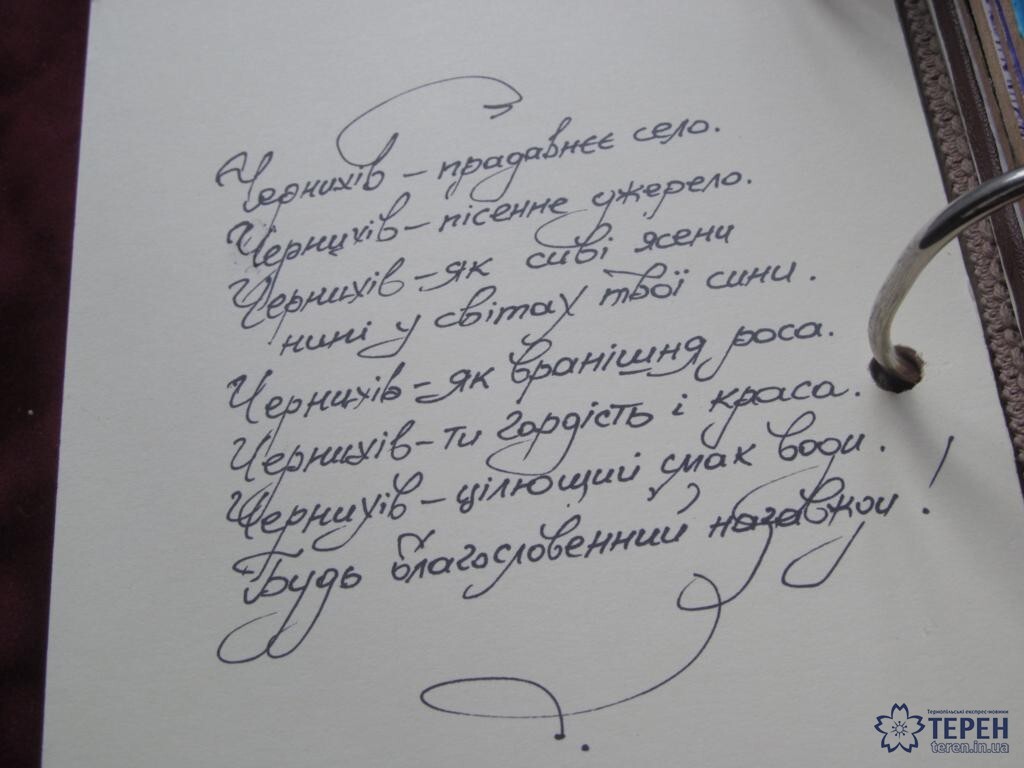 Чернихів – прадавнєє село.
Чернихів – пісенне джерело.
Чернихів – як сиві ясени
нині у світах твої сини.
Чернихів – як вранішня роса.
Чернихів – ти гордість і краса.
Чернихів – цілющий смак води.
Будь благословенний назавжди!
Тернопільські експрес-новини
ТЕРЕН
teren.in.ua